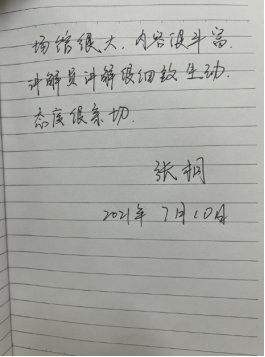 场馆很大，内容很丰富，
讲解员讲解很细致生动，
态度很亲切。
张翔
2021年7月10日